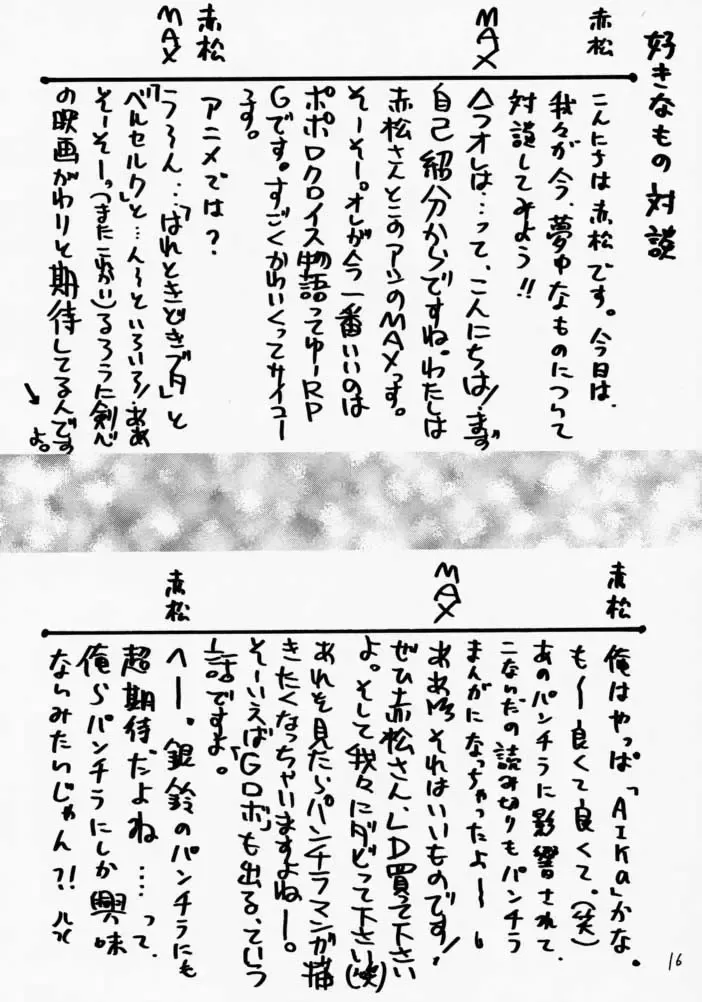 好きなもの対談
赤松
こんにちは赤松です。今日は、
我々が今、夢中なものについて
対談してみよう!!
MAX
今オレは…って、こんにちは!まず
自己紹介からですね。わたしは
赤松さんとこのアシのMAXっす。
そーそー。オレが今一番いいのは
ポポロクロイス物語ってゆーRP
Gです。すごくかわいくってサイコー
です。
赤松
アニメでは?
MAX
う〜ん…「はれときどきブタ」と
「ベルセルク」と…ん〜といろいろ!ああ
そーそーっ(またこれかい)るろうに剣心
の映画がわりと期待してるんです
よ。
赤松
俺はやっぱ「AIKa」かな。
も〜良くて良くて。(笑)
あのパンチラに影響されて、
こないだの読み切りもパンチラ
まんがになっちゃったよ〜
MAX
ああ それはいいものです!
ぜひ赤松さん、LD買って下さい
よ。そして我々にダビって下さい(笑)
あれを見たらパンチラマンガ描
きたくなっちゃいますよねー。
そーいえば「Gロボ」も出る、ていう
話ですよ。
赤松
へー。銀鈴のパンチラにも
超期待だよね……って、
俺らパンチラにしか興味
ないみたいじゃん?!
16